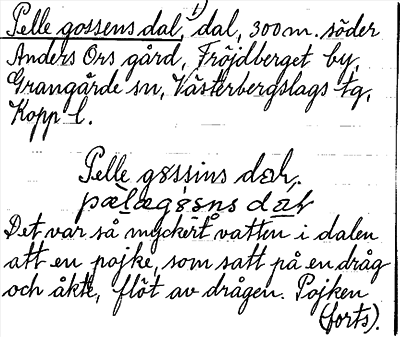 Pelle gossens dal, 1) dal, 300 m. söder
Anders Ors gård, Fröjdberget by,
Grangärde sn, Västerbergslags tg,
Kopp l.
Pelle gossins dah.
Det var så myckert vatten i dalen
att en pojke, som satt på en dråg
och åkte, flöt av drågen. Pojken
(forts).